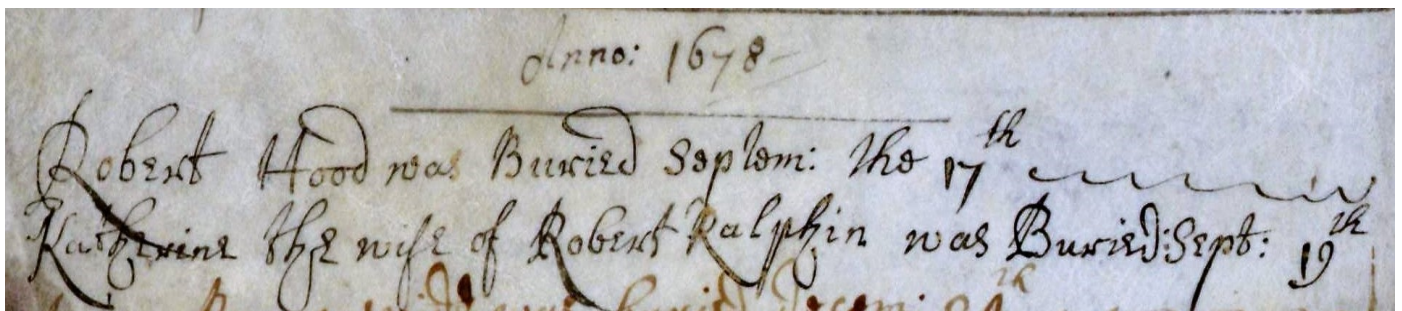 Anno: 1678
Robert Hood was Buried Septem: the 17th
Katherine the wife of Robert Ralphin was Buried: Sept: 19th